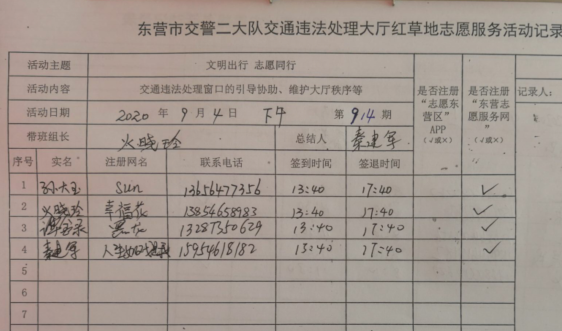 东营市交警二大队交通违法处理大厅红草地志愿服务活动记录
活动主题 文明出行 志愿同行
活动内容 交通违法处理窗口的引导协助、维护大厅秩序等
活动日期 2020 年 9 月 4 日 下午 第 914 期
是否注册“志愿东营区”APP（√或×）
是否注册“东营志愿服务网”（√或×）
记录人：
带班组长 火晓玲 总结人 秦建军
序号 实名 注册网名 联系电话 签到时间 签退时间
1 孙大玉 Sun 13656477356 13:40 17:40 ✓
2 火晓玲 幸福花 13854658983 13:40 17:40 ✓
3 13287350629 13:40 17:40 ✓
4 秦建军 15954618182 13:40 17:40 ✓
5
6
7
8